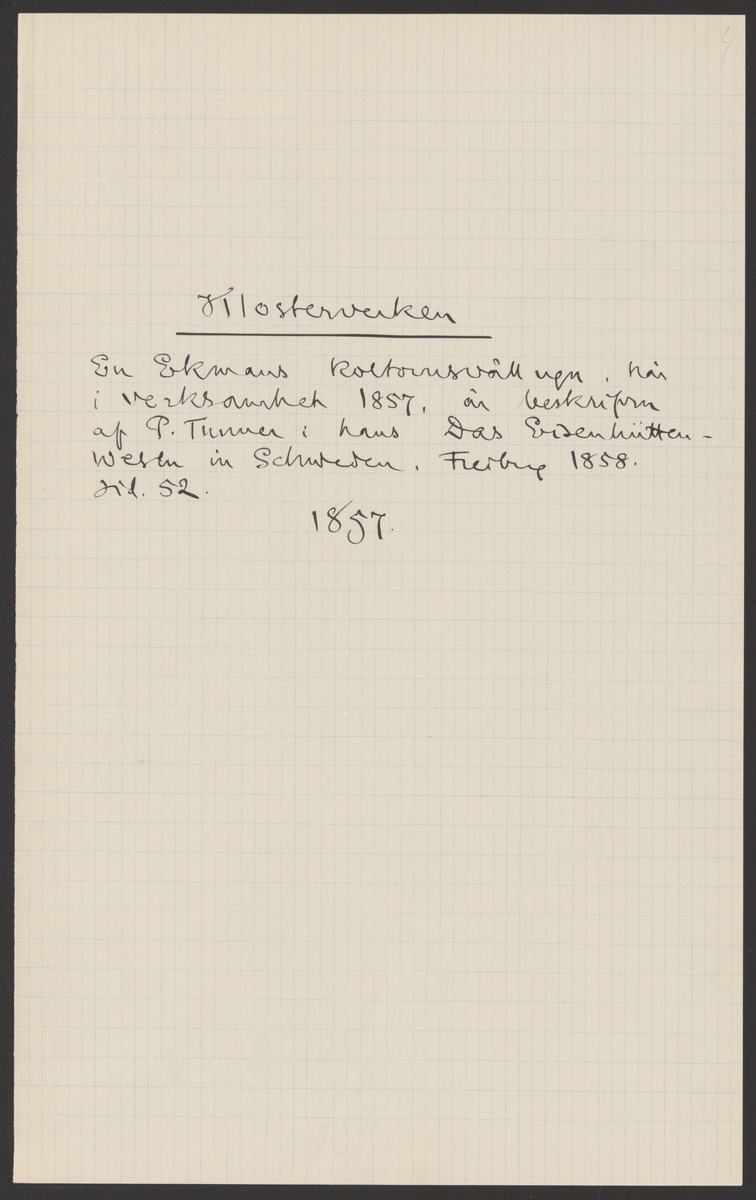 Klosterverken
En Ekmans koltornsvällugn, här
i verksamhet 1857, är beskrifven
af P. Tunner i hans Das Eisenhütten-
wesen in Schweden. Freiberg 1858.
sid. 52.
1857.